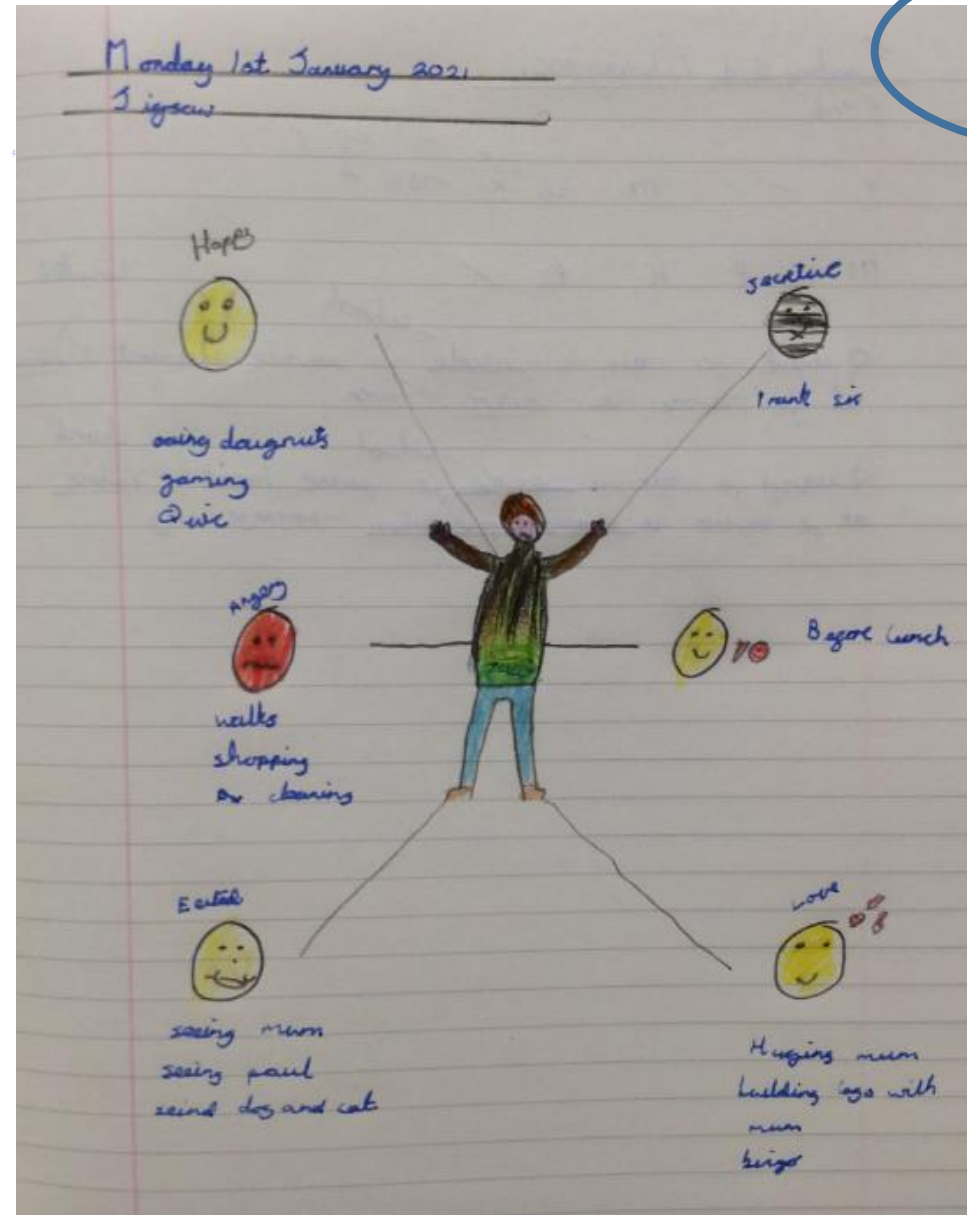 Monday 1st January 2021
Jigsaw
Happy
gaming
secretive
Prank sis
Angery
walks
shopping
cleaning
Before Lunch
Exited
seeing mum
seeing paul
seind dog and cat
Love
Huging mum
building lego with
mum